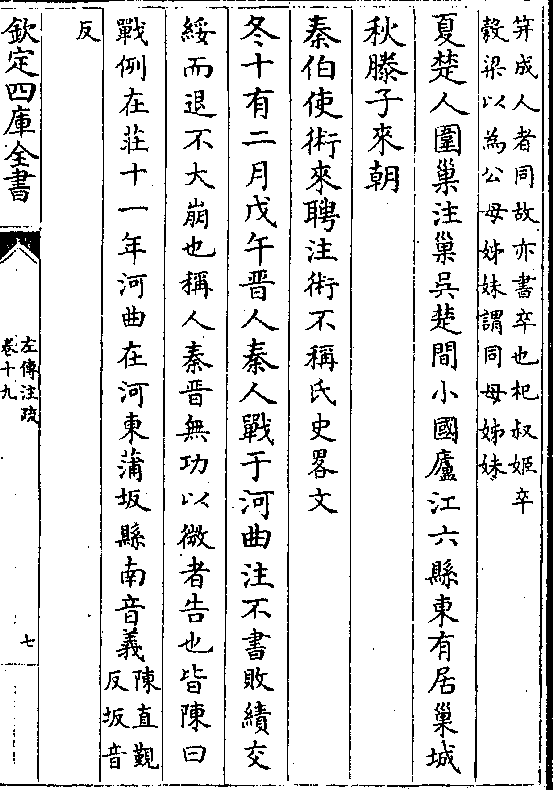 笄成人者同故亦書卒也杞叔姬卒
穀梁以為公母姊妹謂同母姊妹
夏楚人圍巢注巢吳楚間小國廬江六縣東有居巢城
秋滕子來朝
秦伯使術來聘注術不稱氏史畧文
冬十有二月戊午晉人秦人戰于河曲注不書敗績交
綏而退不大崩也稱人秦晉無功以微者告也皆陳曰
戰例在莊十一年河曲在河東蒲坂縣南音義陳直覲
反坂音
反
欽定四庫全書
左傳注疏
卷十九
七